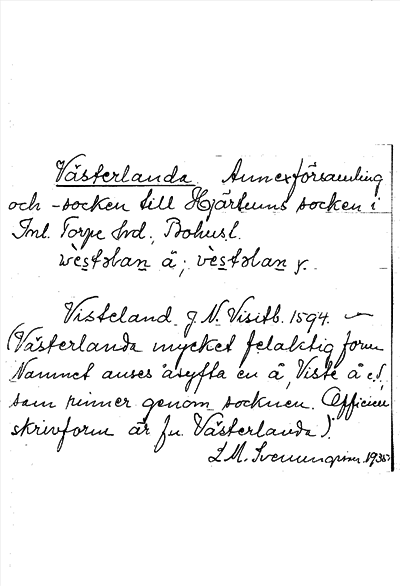 Västerlanda. Annexförsamling
och -socken till Hjärtums socken i
Inl. Torpe hd., Bohusl.
vèstəlan ä; vèstəlan y.
Visteland J N. Visitb. 1594. —
(Västerlanda mycket felaktig form
Namnet anses åsyfta en å, Viste å el.
som rinner genom socknen. Officiell
skrivform är fn. Västerlanda).
L M. Svenungsson. 1935.